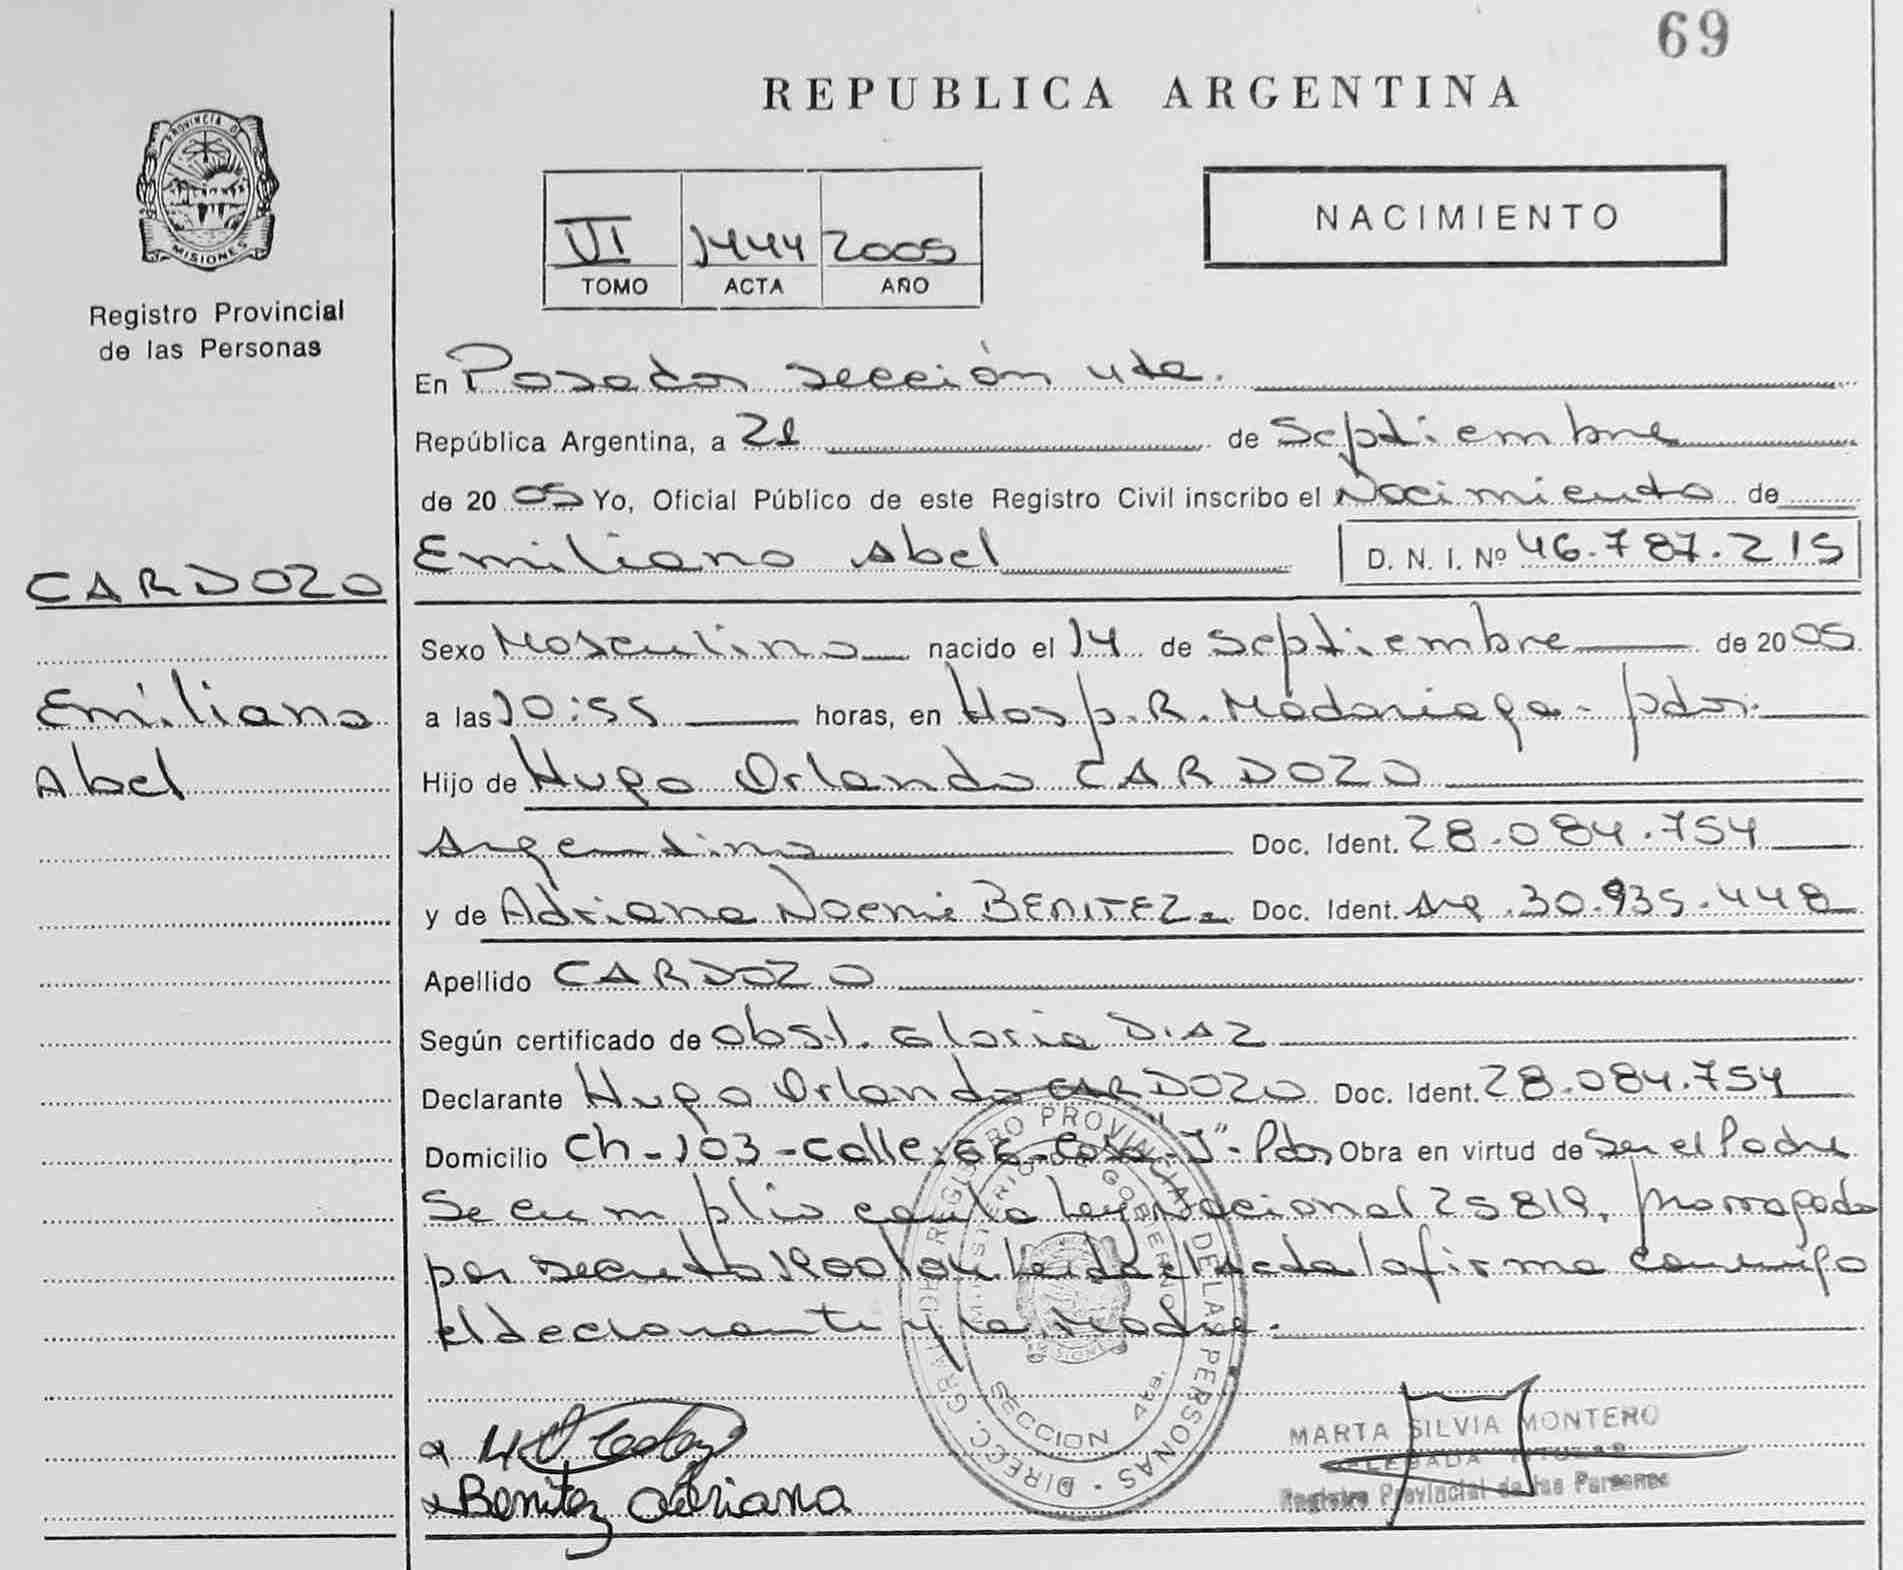 69
REPUBLICA ARGENTINA
PROVINCIA DE
MISIONES
Registro Provincial
de las Personas
VI 1444 2005
TOMO ACTA AÑO
NACIMIENTO
En Posadas sección 4ta.
República Argentina, a 21 de Septiembre
de 2005 Yo, Oficial Público de este Registro Civil inscribo el Nacimiento de
Emiliano Abel D. N. I. Nº 46.787.215
CARDOZO
Emiliano
Abel
Sexo Masculino nacido el 14 de Septiembre de 2005
a las 10:55 horas, en Hosp. R. Madariaga - pdas.
Hijo de Hugo Orlando CARDOZO
Argentino Doc. Ident. 28.084.754
y de Adriana Noemi BENITEZ Doc. Ident. Arg. 30.935.448
Apellido CARDOZO
Según certificado de obst. Gloria DIAZ
Declarante Hugo Orlando CARDOZO Doc. Ident. 28.084.754
Domicilio Ch-103-calle casa "J"- Pdas Obra en virtud de Ser el Padre
Se cumplio con la Ley Nacional 25819, prorrogada
por decreto Leida el acta la firma conmigo
el declarante y la Madre.
DIRECC. GRAL. DEL REGISTRO PROVINCIAL DE LAS PERSONAS
MINISTERIO DE GOBIERNO
MISIONES
SECCION 4ta.
Benitez Adriana
MARTA SILVIA MONTERO
DELEGADA TITULAR
Registro Provincial de las Personas